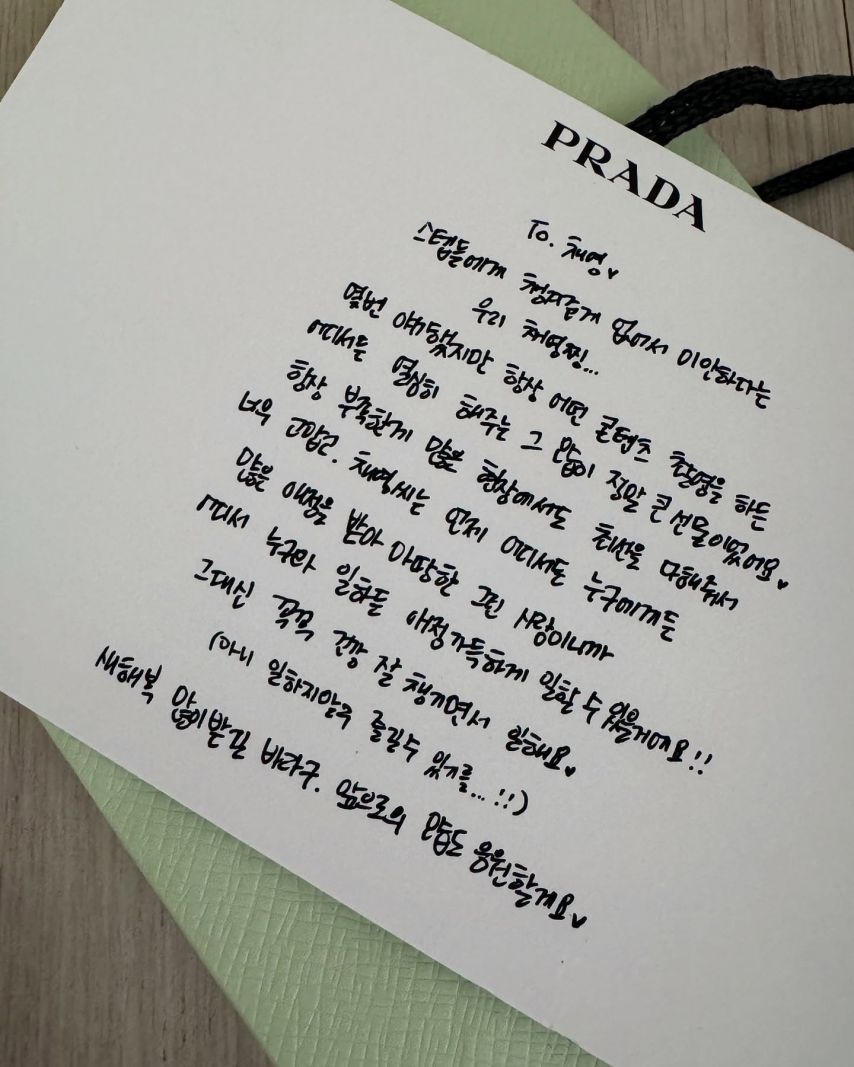 PRADA
To. 채영♥
스텝들에게 청피줍게 없어서 미안하다는
우리 채영찡...
몇번 얘기했지만 항상 어떤 콘텐츠 촬영을 하든
어디서든 열심히 해주는 그 맘이 정말 큰 선물이었어요♥
항상 부족한게 많은 현장에서도 최선을 다해줘서
너무 고맙고. 채영씨는 언제 어디서도 누구에게든
많은 애정을 받아 마땅한 그런 사람이니까
어디서 누구와 일하든 애정가득하게 일할 수 있을거에요!!
그대신 꼭꼭 건강 잘 챙기면서 일해요♥
(아니 일하지말고 즐길수 있기를...!!)
새해복 많이받길 바라구. 앞으로의 맘도 응원할게요♥